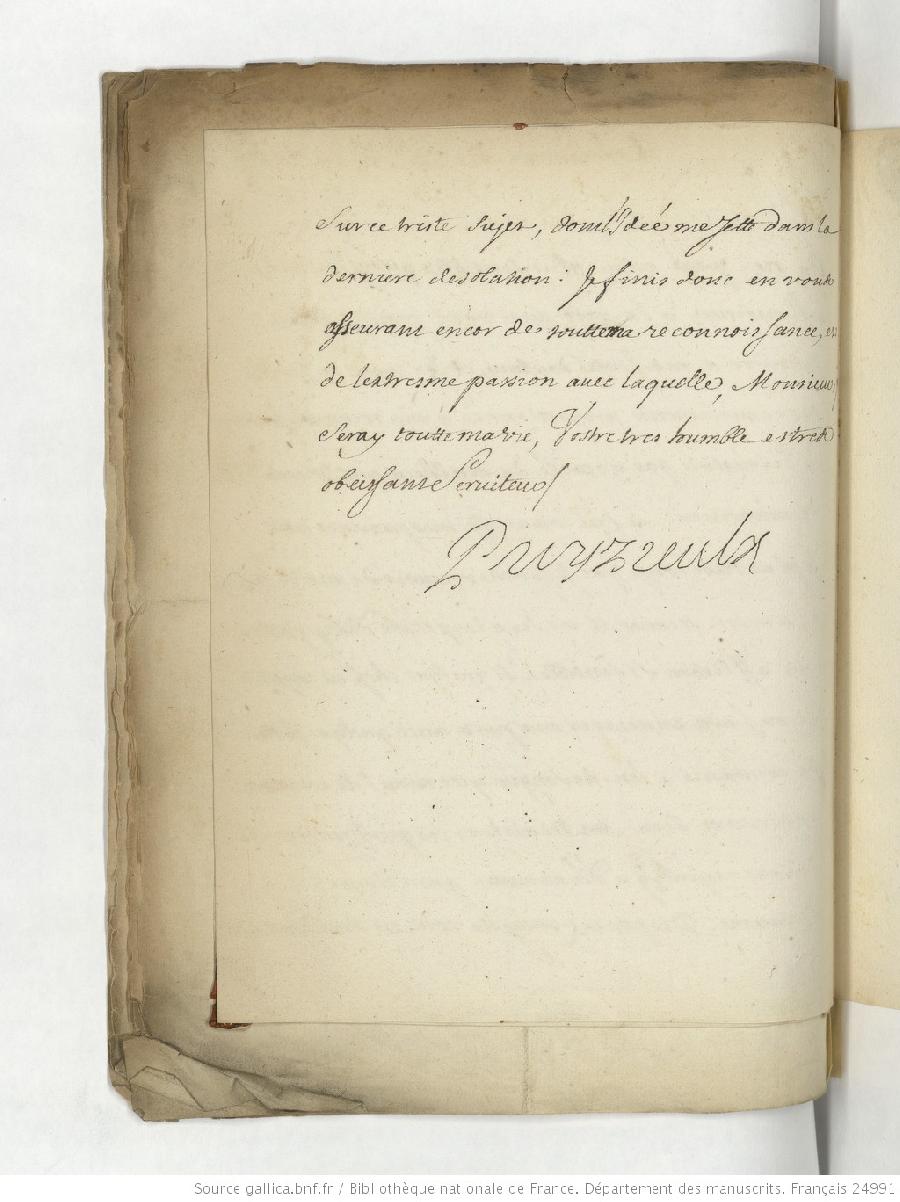 Sur ce triste sujet, dont l'idée me jette dans la
derniere desolation: Je finis donc en vous
asseurant encor de toutte ma reconnoissance, et
de lextresme passion avec laquelle, Monsieur
seray toutte ma vie, Vostre tres humble et tres
obeissant Serviteur
Puyzieulx
Source gallica.bnf.fr / Bibliothèque nationale de France. Département des manuscrits. Français 24991